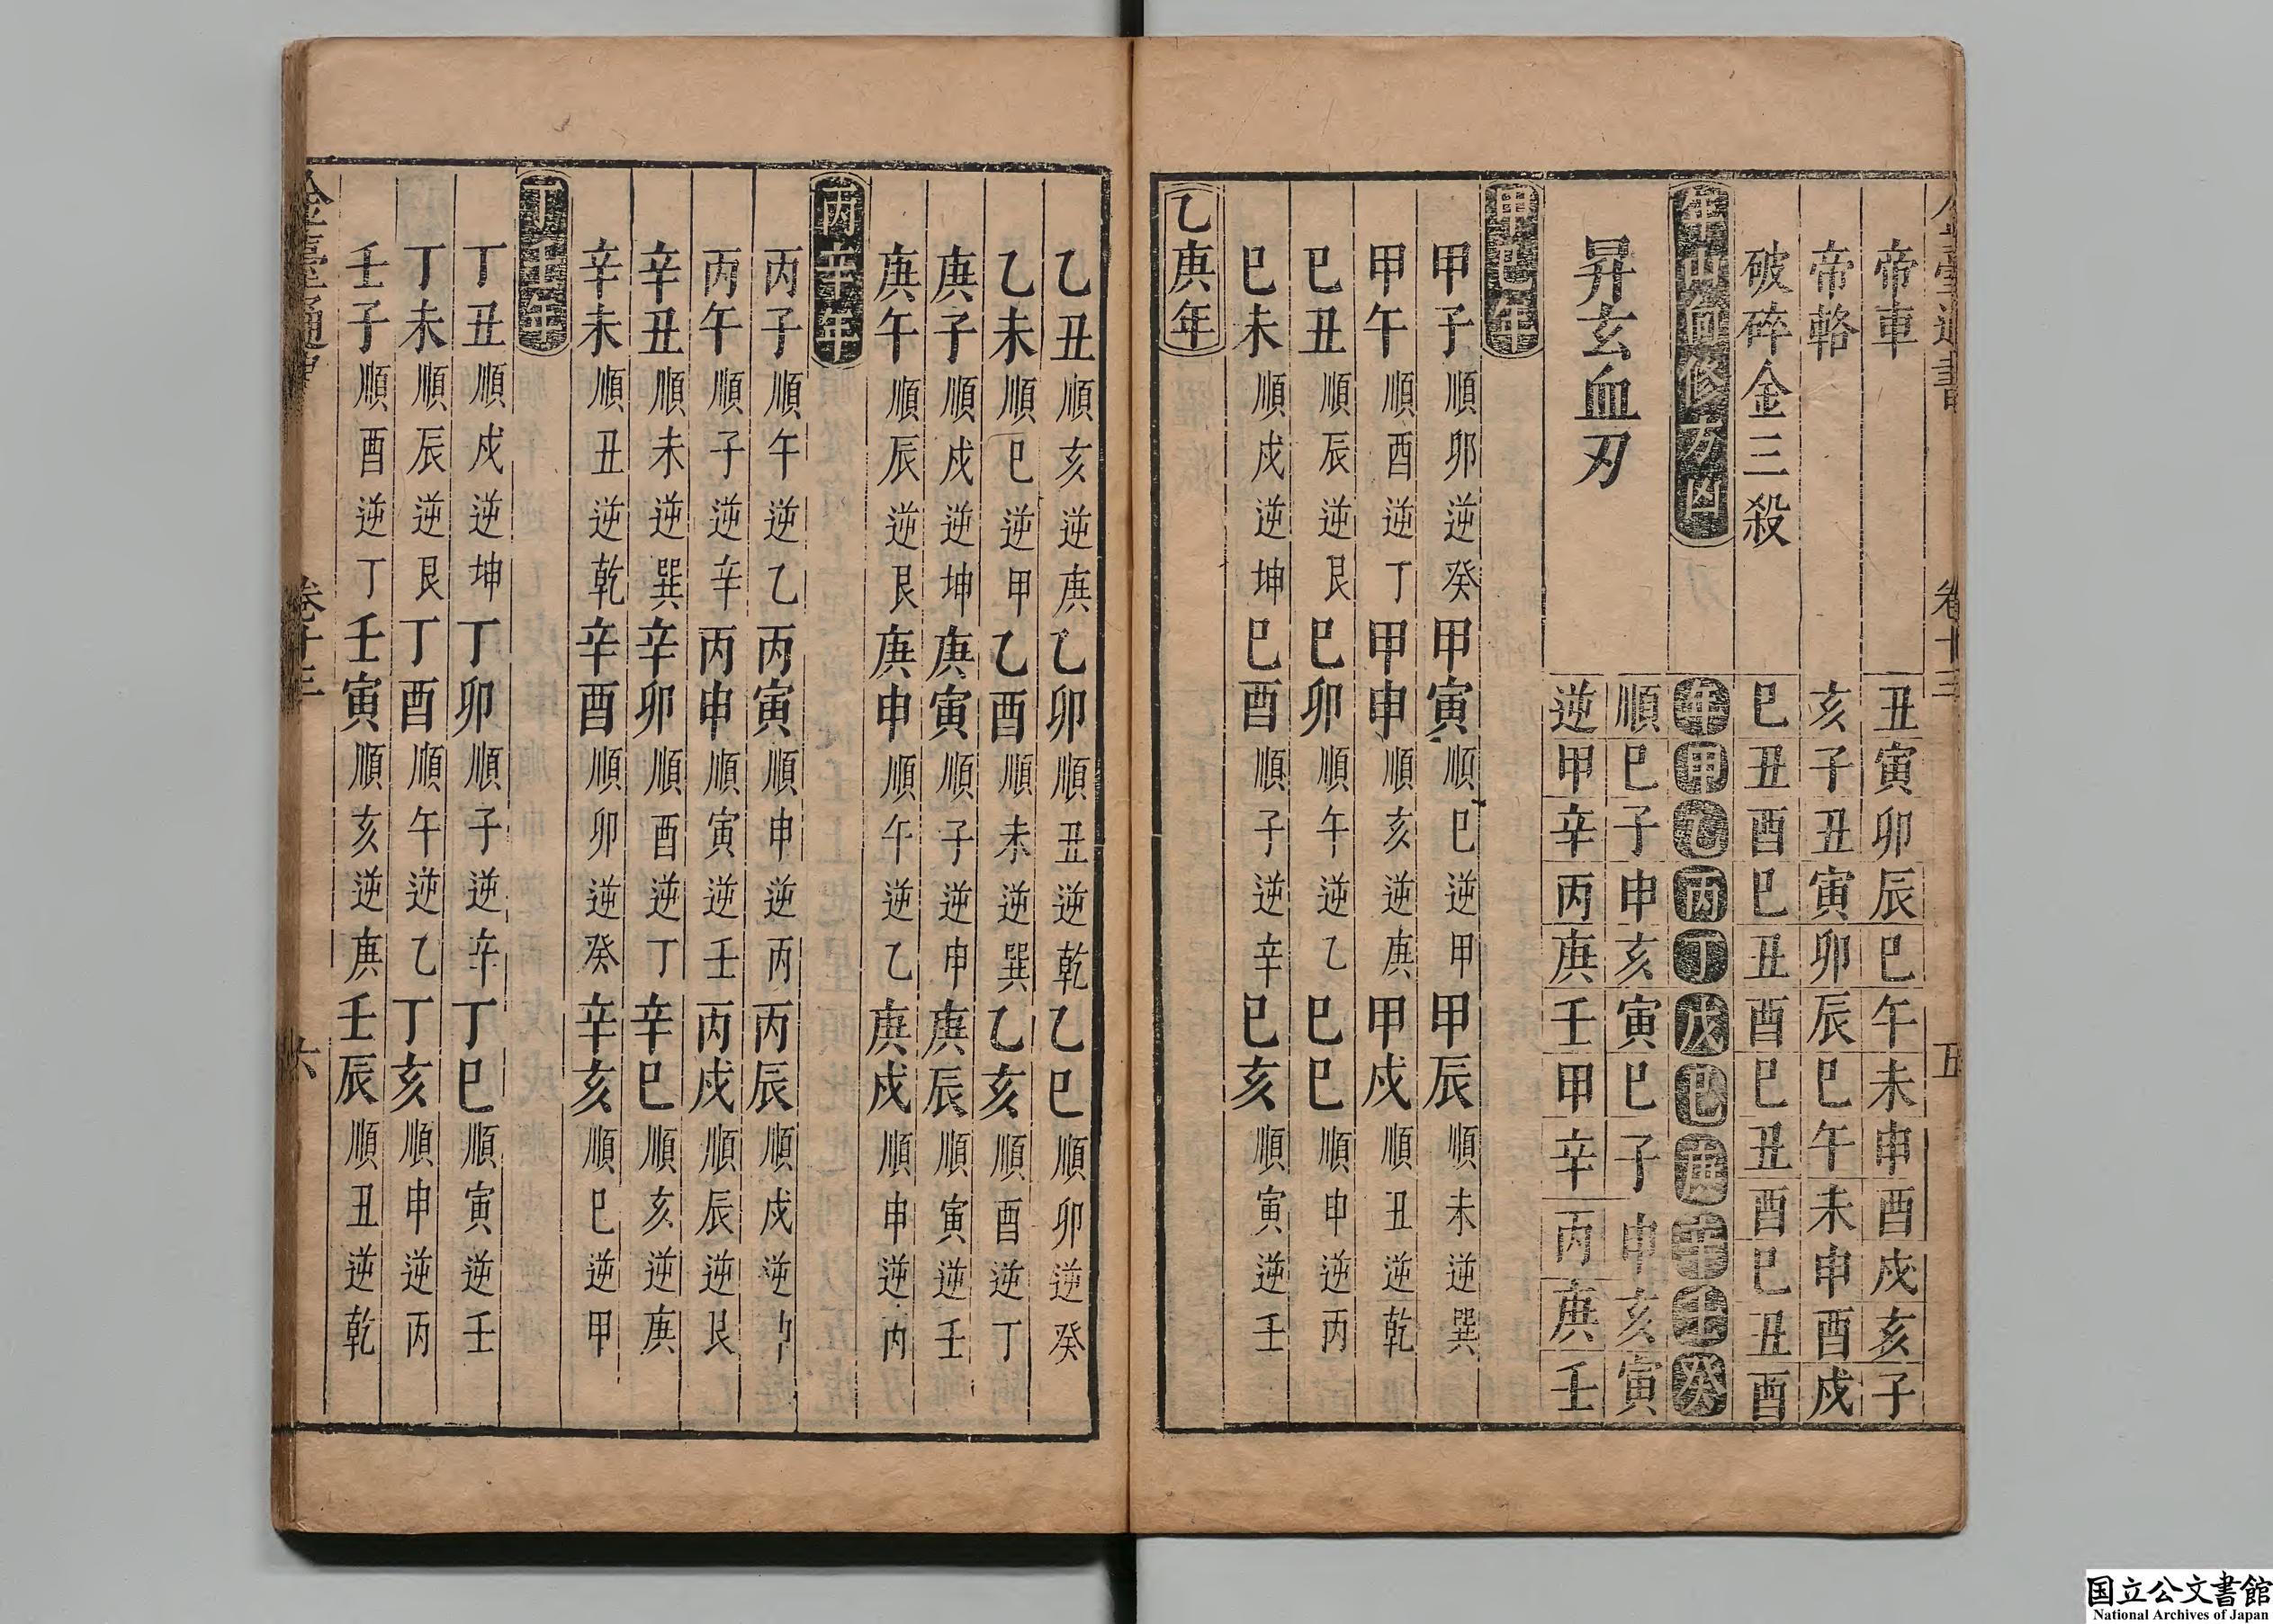 卷十三 五
帝車 丑寅卯辰巳午未申酉戌亥子
帝輅 亥子丑寅卯辰巳午未申酉戌
破碎金三殺 巳丑酉巳丑酉巳丑酉巳丑酉
修方凶 年甲乙丙丁戊巳庚辛壬癸
昇玄血刃 順巳子申亥寅巳子申亥寅
逆甲辛丙庚壬甲辛丙庚壬
甲巳年
甲子順卯逆癸甲寅順巳逆甲甲辰順未逆巽
甲午順酉逆丁甲申順亥逆庚甲戌順丑逆乾
巳丑順辰逆艮巳卯順午逆乙巳巳順申逆丙
巳未順戌逆坤巳酉順子逆辛巳亥順寅逆壬
乙庚年
乙丑順亥逆庚乙卯順丑逆乾乙巳順卯逆癸
乙未順巳逆甲乙酉順未逆巽乙亥順酉逆丁
庚子順戌逆坤庚寅順子逆申庚辰順寅逆壬
庚午順辰逆艮庚申順午逆乙庚戌順申逆丙
丙辛年
丙子順午逆乙丙寅順申逆丙丙辰順戌逆
丙午順子逆辛丙申順寅逆壬丙戌順辰逆艮
辛丑順未逆巽辛卯順酉逆丁辛巳順亥逆庚
辛未順丑逆乾辛酉順卯逆癸辛亥順巳逆甲
丁壬年
丁丑順戌逆坤丁卯順子逆辛丁巳順寅逆壬
丁未順辰逆艮丁酉順午逆乙丁亥順申逆丙
壬子順酉逆丁壬寅順亥逆庚壬辰順丑逆乾
金臺通書 卷十三 六
国立公文書館
National Archives of Japan